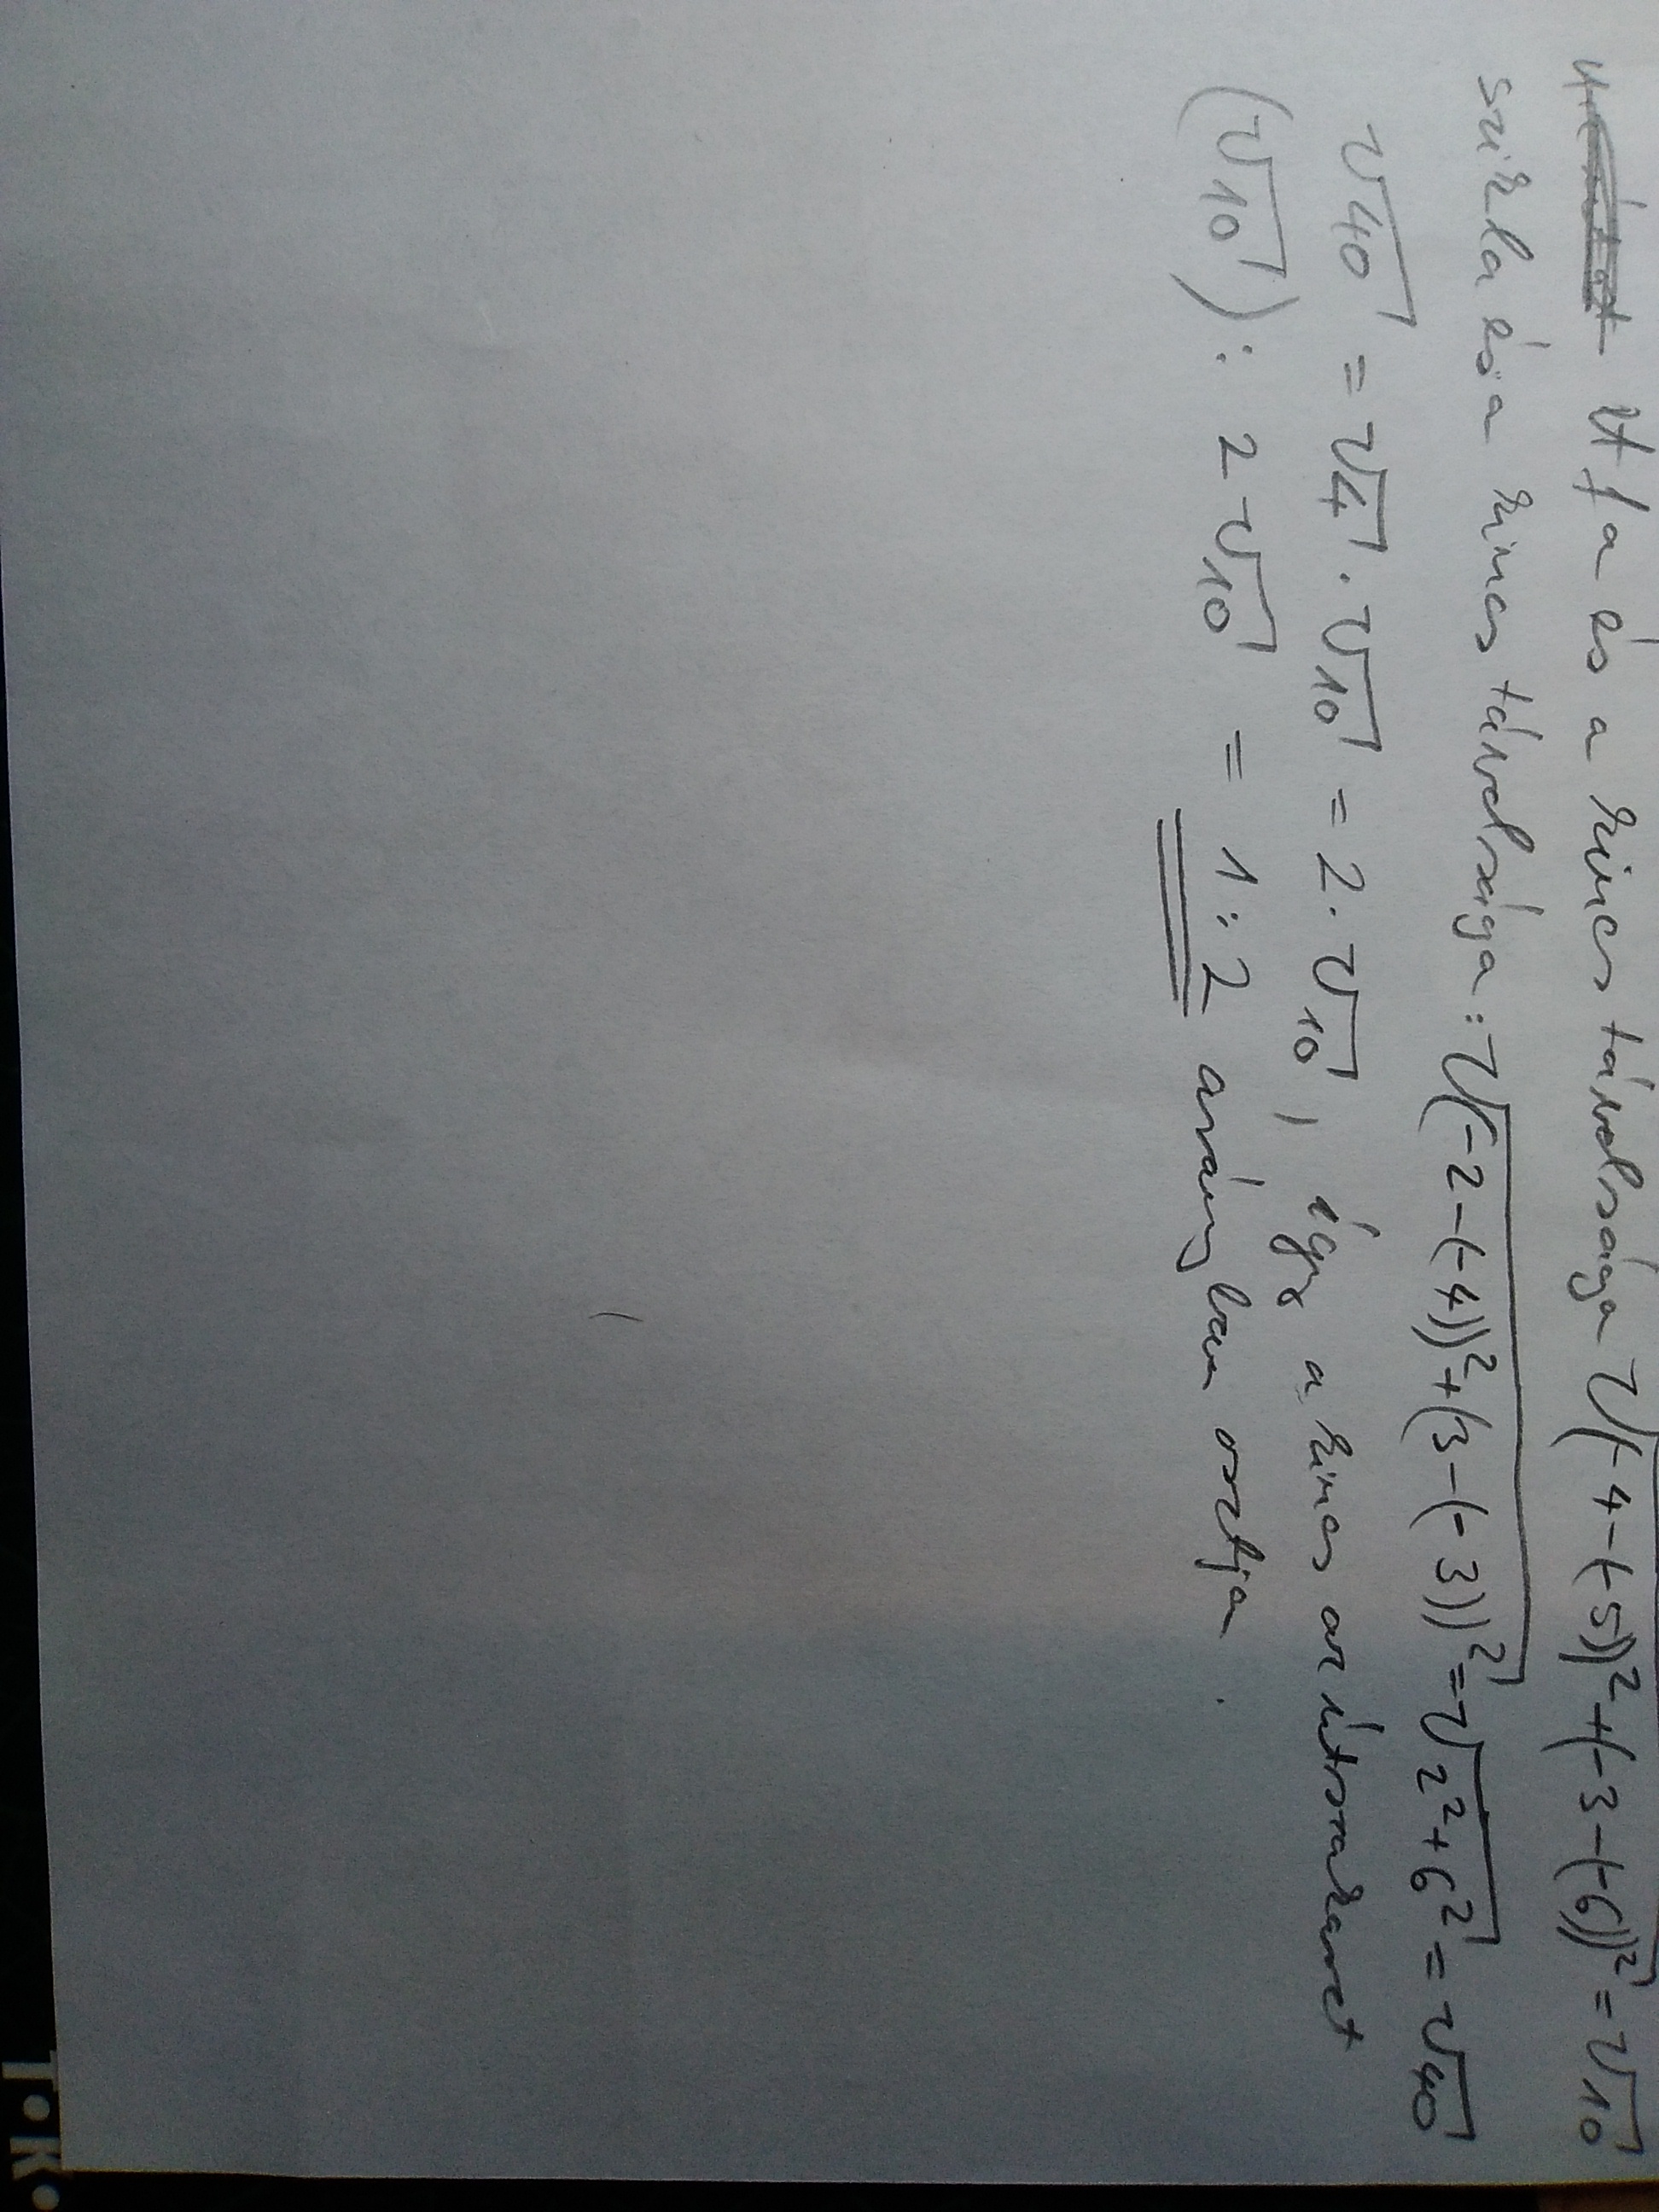 A fa és a kincs távolsága √(-4-(-5))²+(-3-(-6))² = √10
szikla és a kincs távolsága: √(-2-(-4))²+(3-(-3))² = √2²+6² = √40
√40 = √4 · √10 = 2 · √10, így a kincs az útszakaszt
(√10) : 2√10 = 1:2 arányban osztja.